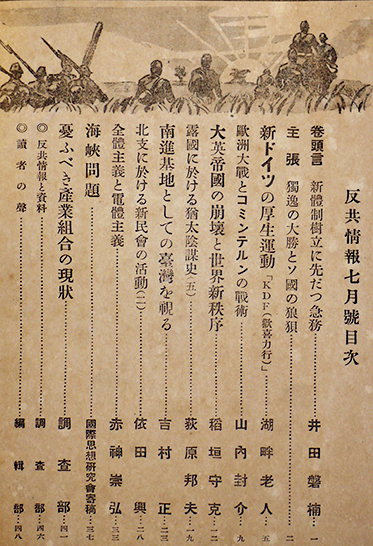 反共情報七月號目次
卷頭言 新體制樹立に先だつ急務……井田磐楠…一
主張 獨逸の大勝とソ國の狼狽……二
新ドイツの厚生運動「KDF(歡喜力行)」……湖畔老人…五
歐洲大戰とコミンテルンの戰術……山內封介…九
大英帝國の崩壞と世界新秩序……稻垣守克…一二
露國に於ける猶太陰謀史(五)……荻原邦夫…一九
南進基地としての臺灣を視る……吉村正…二三
北支に於ける新民會の活動(二)……依田興…二八
全體主義と電體主義……赤神崇弘…三三
海峽問題……國際思想硏究會寄稿…三七
憂ふべき產業組合の現狀……調査部…四一
◎反共情報と資料……調査部…四六
◎讀者の聲……編輯部…四八